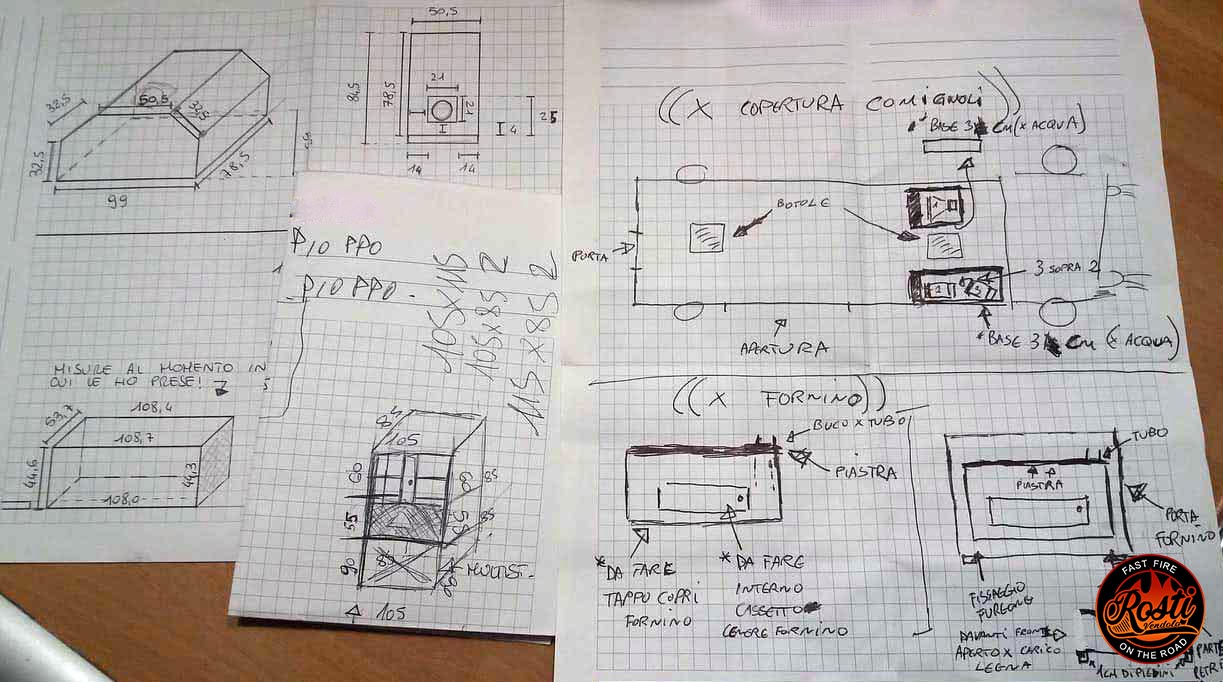 32,5
50,5
32,5
32,5
78,5
99
50,5
84,5
78,5
21
21
4
25
14
14
PIO PPO
PIO PPO.
105X115
105X85 2
115X85 2
MISURE AL MOMENTO IN
CUI LE HO PRESE!
53,7
108,4
108,7
44,6
44,3
108,0
105
60
60
85
55
55
85
90
MULTIST.
105
((X COPERTURA COMIGNOLI))
*BASE 3 cm (X ACQUA)
BOTOLE
PORTA
3 SOPRA 2
1
2
APERTURA
*BASE 3 cm (X ACQUA)
((X FORNINO))
BUCO X TUBO
PIASTRA
*DA FARE
TAPPO COPRI
FORNINO
*DA FARE
INTERNO
CASSETTO
CENERE FORNINO
TUBO
PIASTRA
PORTA
FORNINO
FISSAGGIO
FURGONE
DAVANTI FRONTE
APERTO X CARICO
LEGNA
1CM DI PIEDINI
FAST FIRE
Rosti
Vendolo
ON THE ROAD